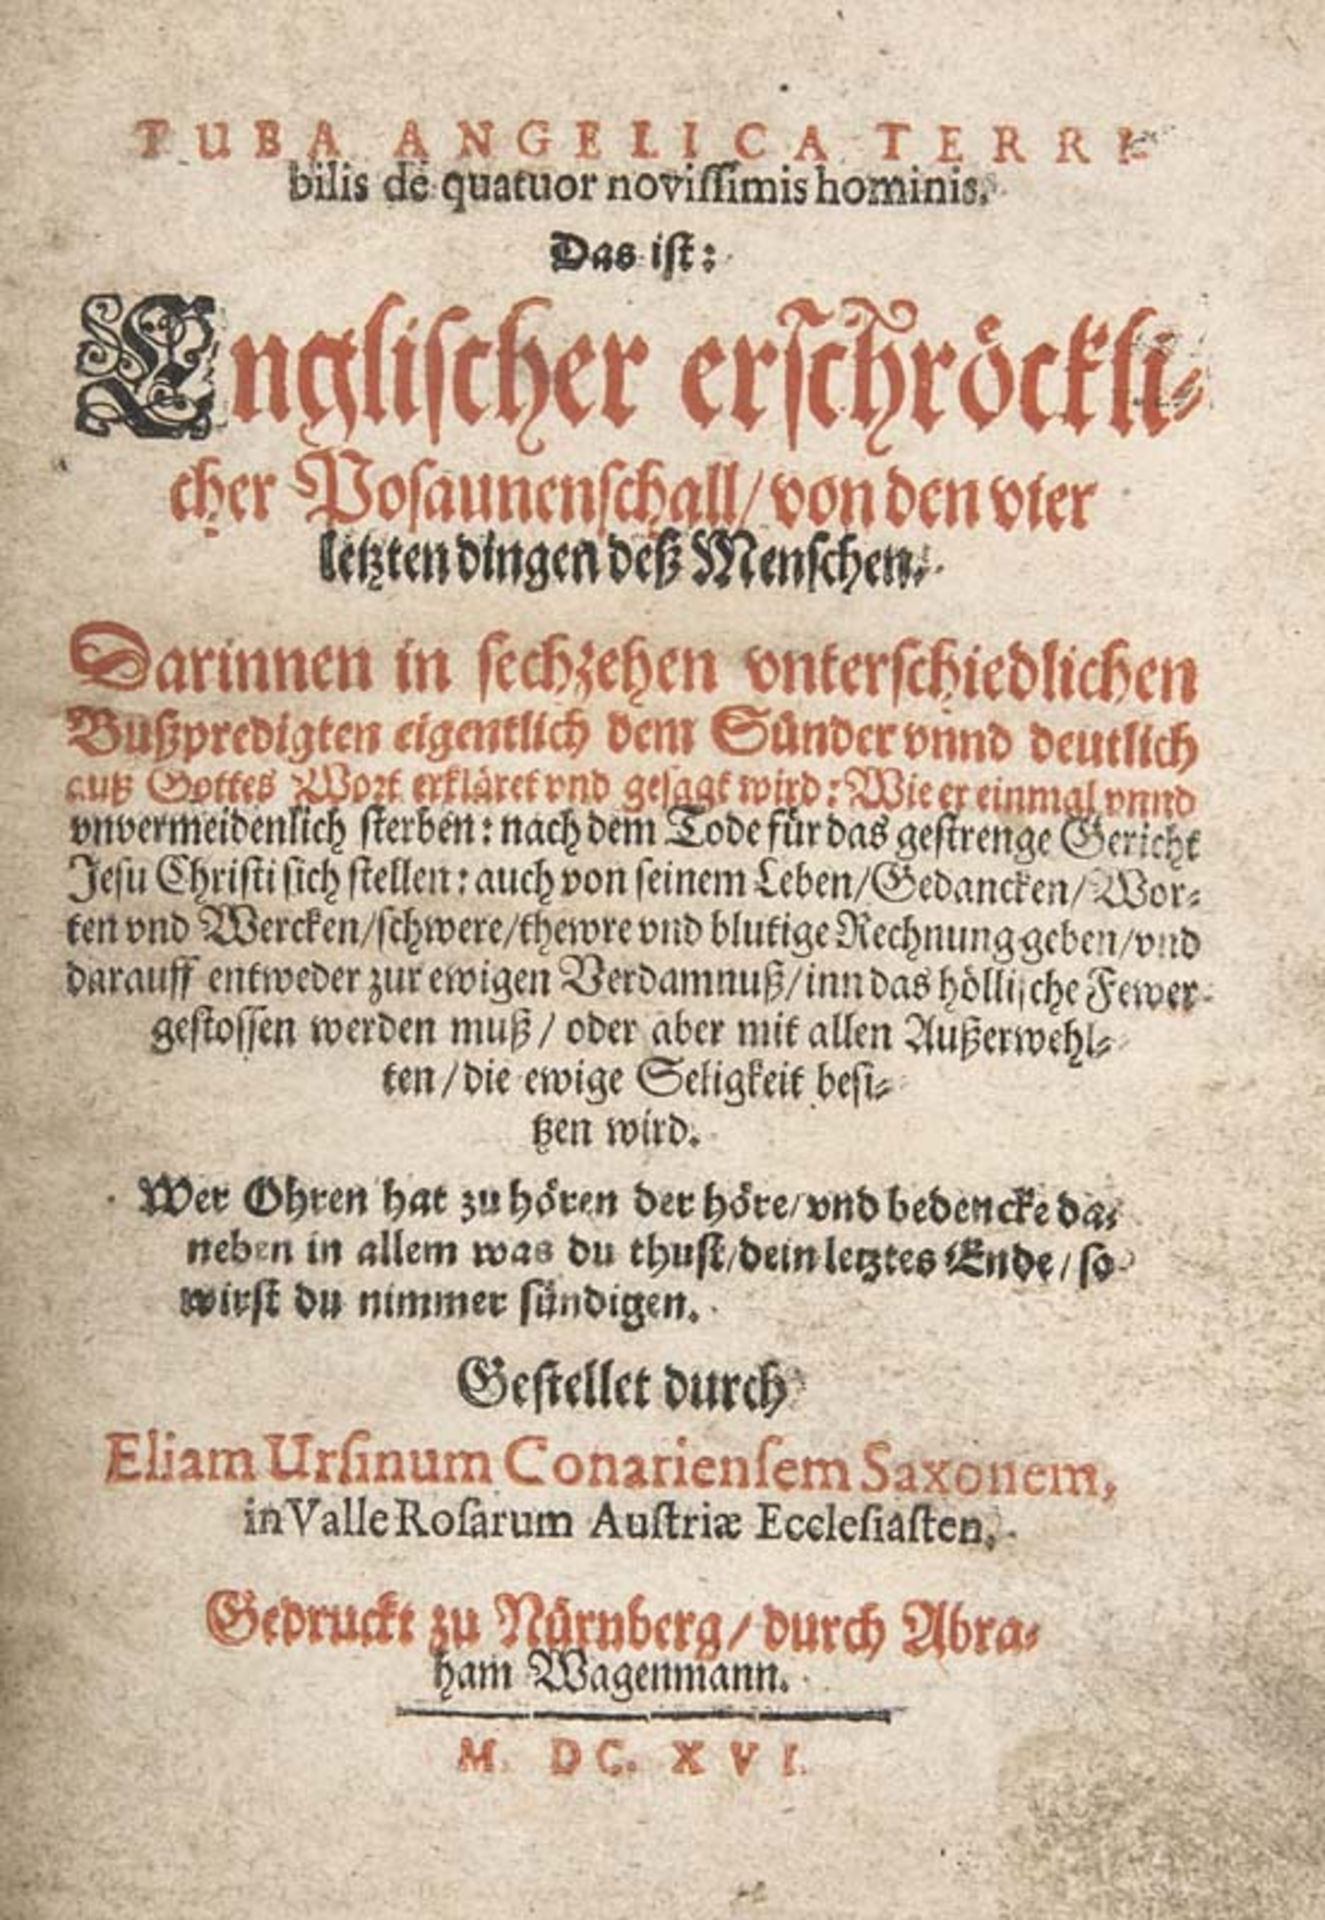 TUBA ANGELICA TERRI-
bilis de quatuor noviſſimis hominis.
Das iſt:
Engliſcher erſchröckli-
cher Poſaunenſchall/ von den vier
letzten dingen deß Menſchen.
Darinnen in ſechzehen vnterſchiedlichen
Bußpredigten eigentlich dem Sünder vnnd deutlich
auß Gottes Wort erkläret vnd geſagt wird: Wie er einmal vnnd
vnvermeidenlich ſterben: nach dem Tode für das geſtrenge Gericht
Jeſu Chriſti ſich ſtellen: auch von ſeinem Leben/ Gedancken/ Wor-
ten vnd Wercken/ ſchwere/ thewre vnd blutige Rechnung geben/ vnd
darauff entweder zur ewigen Verdamnuß/ inn das hölliſche Fewer
geſtoſſen werden muß/ oder aber mit allen Außerwehl-
ten/ die ewige Seligkeit beſi-
tzen wird.
Wer Ohren hat zu hören der höre/ vnd bedencke da-
neben in allem was du thuſt/ dein letztes Ende/ ſo
wirſt du nimmer ſündigen.
Geſtellet durch
Eliam Urſinum Conarienſem Saxonem,
in Valle Roſarum Auſtriæ Eccleſiaſten.
Gedruckt zu Nürnberg/ durch Abra-
ham Wagenmann.
M. DC. XVI.